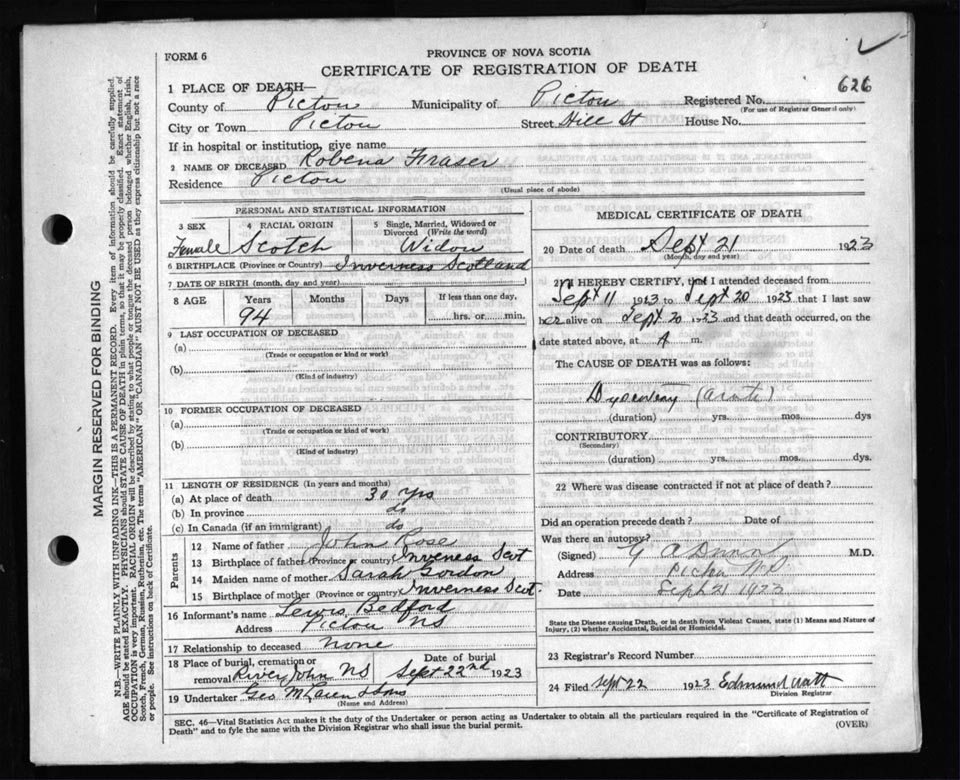 FORM 6
PROVINCE OF NOVA SCOTIA
CERTIFICATE OF REGISTRATION OF DEATH
626
1 PLACE OF DEATH—
County of Pictou Municipality of Pictou Registered No.
(For use of Registrar General only)
City or Town Pictou Street Hill St House No.
If in hospital or institution, give name
2 NAME OF DECEASED Robena Fraser
Residence Pictou
(Usual place of abode)
PERSONAL AND STATISTICAL INFORMATION
3 SEX Female
4 RACIAL ORIGIN Scotch
5 Single, Married, Widowed or Divorced (Write the word) Widow
6 BIRTHPLACE (Province or Country) Inverness Scotland
7 DATE OF BIRTH (month, day, and year)
8 AGE Years Months Days If less than one day,
94 hrs. or min.
9 LAST OCCUPATION OF DECEASED
(a)
(Trade or occupation or kind or work)
(b)
(Kind of industry)
10 FORMER OCCUPATION OF DECEASED
(a)
(Trade or occupation or kind of work)
(b)
(Kind of industry)
11 LENGTH OF RESIDENCE (In years and months)
(a) At place of death 30 yrs
(b) In province do
(c) In Canada (if an immigrant) do
Parents
12 Name of father John Rose
13 Birthplace of father (Province or Country) Inveness Scot
14 Maiden name of mother Sarah Gordon
15 Birthplace of mother (Province or Country) Inverness Scot.
16 Informant's name Lewis Bedford
Address Pictou NS
17 Relationship to deceased none
18 Place of burial, cremation or removal River John NS
Date of burial Sept 22nd 1923
19 Undertaker Geo & Sons
(Name and Address)
MEDICAL CERTIFICATE OF DEATH
20 Date of death Sept 21 1923
(Month, day and year)
21 I HEREBY CERTIFY, that I attended deceased from
Sept 11 1923 to Sept 20 1923 that I last saw
her alive on Sept 20 1923 and that death occurred, on the
date stated above, at A m.
The CAUSE OF DEATH was as follows:
Dysentery (acute)
(duration) yrs. mos. dys
CONTRIBUTORY
(Secondary)
(duration) yrs. mos. dys.
22 Where was disease contracted if not at place of death?
Did an operation precede death? Date of
Was there an autopsy?
(Signed) G A Dunn M.D.
Address Pictou N.S.
Date Sept 21 1923
State the Disease causing Death, or in death from Violent Causes, state (1) Means and Nature of
Injury, (2) whether Accidental, Suicidal or Homicidal.
23 Registrar's Record Number
24 Filed Sept 22 1923 Edmund Watt
Division Registrar
SEC. 46—Vital Statistics Act makes it the duty of the Undertaker or person acting as Undertaker to obtain all the particulars required in the "Certificate of Registration of
Death" and to fyle the same with the Division Registrar who shall issue the burial permit.
(OVER)
MARGIN RESERVED FOR BINDING
N.B.—WRITE PLAINLY WITH UNFADING INK—THIS IS A PERMANENT RECORD. Every item of information should be carefully supplied.
AGE should be stated EXACTLY. PHYSICIANS should STATE CAUSE OF DEATH in plain terms, so that it may be properly classified. Exact statement of
OCCUPATION is very important. RACIAL ORIGIN will be described by stating to what people or tongue the deceased person belonged whether English, Irish,
Scotch, French, German, Russian, Ruthenian, etc. The terms "AMERICAN" OR "CANADIAN" MUST NOT BE USED as they express citizenship but not a race
or people. See instructions on back of Certificate.